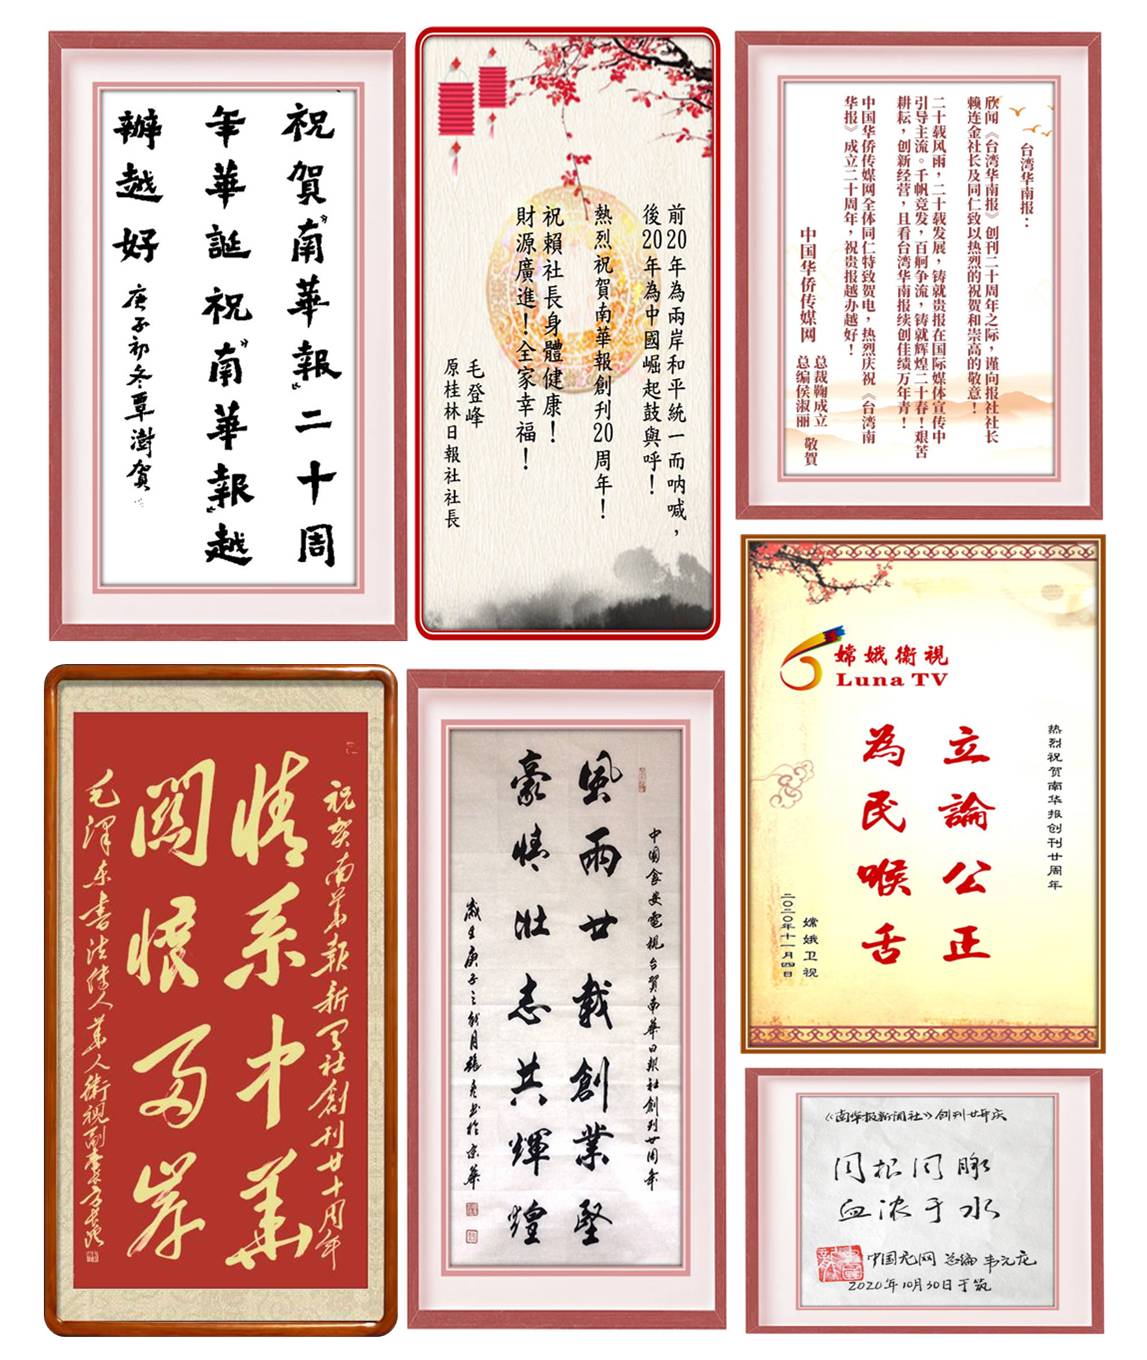 祝賀“南華報”二十周
年華誕祝“南華報”越
辦越好
庚子初冬覃澍賀
前20年為兩岸和平統一而吶喊，
後20年為中國崛起鼓與呼！
熱烈祝賀南華報創刊20周年！
祝賴社長身體健康！
財源廣進！全家幸福！
毛登峰
原桂林日報社社長
台湾华南报：
欣闻《台湾华南报》创刊二十周年之际，谨向报社社长
赖连金社长及同仁致以热烈的祝贺和崇高的敬意！
二十载风雨，二十载发展，铸就贵报在国际媒体宣传中
引导主流。千帆竞发，百舸争流，铸就辉煌二十春！艰苦
耕耘，创新经营，且看台湾华南报续创佳绩万年青！
中国华侨传媒网全体同仁特致贺电，热烈庆祝《台湾南
华报》成立二十周年，祝贵报越办越好！
中国华侨传媒网
总裁鞠成立
总编侯淑丽
敬賀
祝贺南华报新闻社創刊廿十周年
情系中華
關懷两岸
毛澤东書法傳人華人衛視副臺長
中國食安電視台賀南華日報社創刊廿周年
風雨廿載創業堅
豪情壯志共輝煌
歲在庚子之秋月張
書於京華
嫦娥衛視
Luna TV
热烈祝贺南华报创刊廿周年
立論公正
為民喉舌
嫦娥卫视
二〇二〇年十一月四日
《南华报新闻社》创刊廿年庆
同根同脉
血浓于水
中国龙网 总编 韦元龙
2020年10月30日于筑